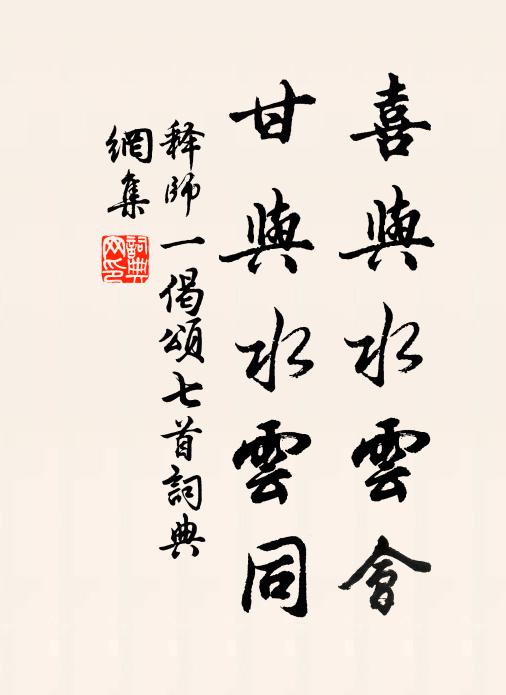 喜與水雲會
甘與水雲同
释師一偈頌七首詞典
網集
詞典網印